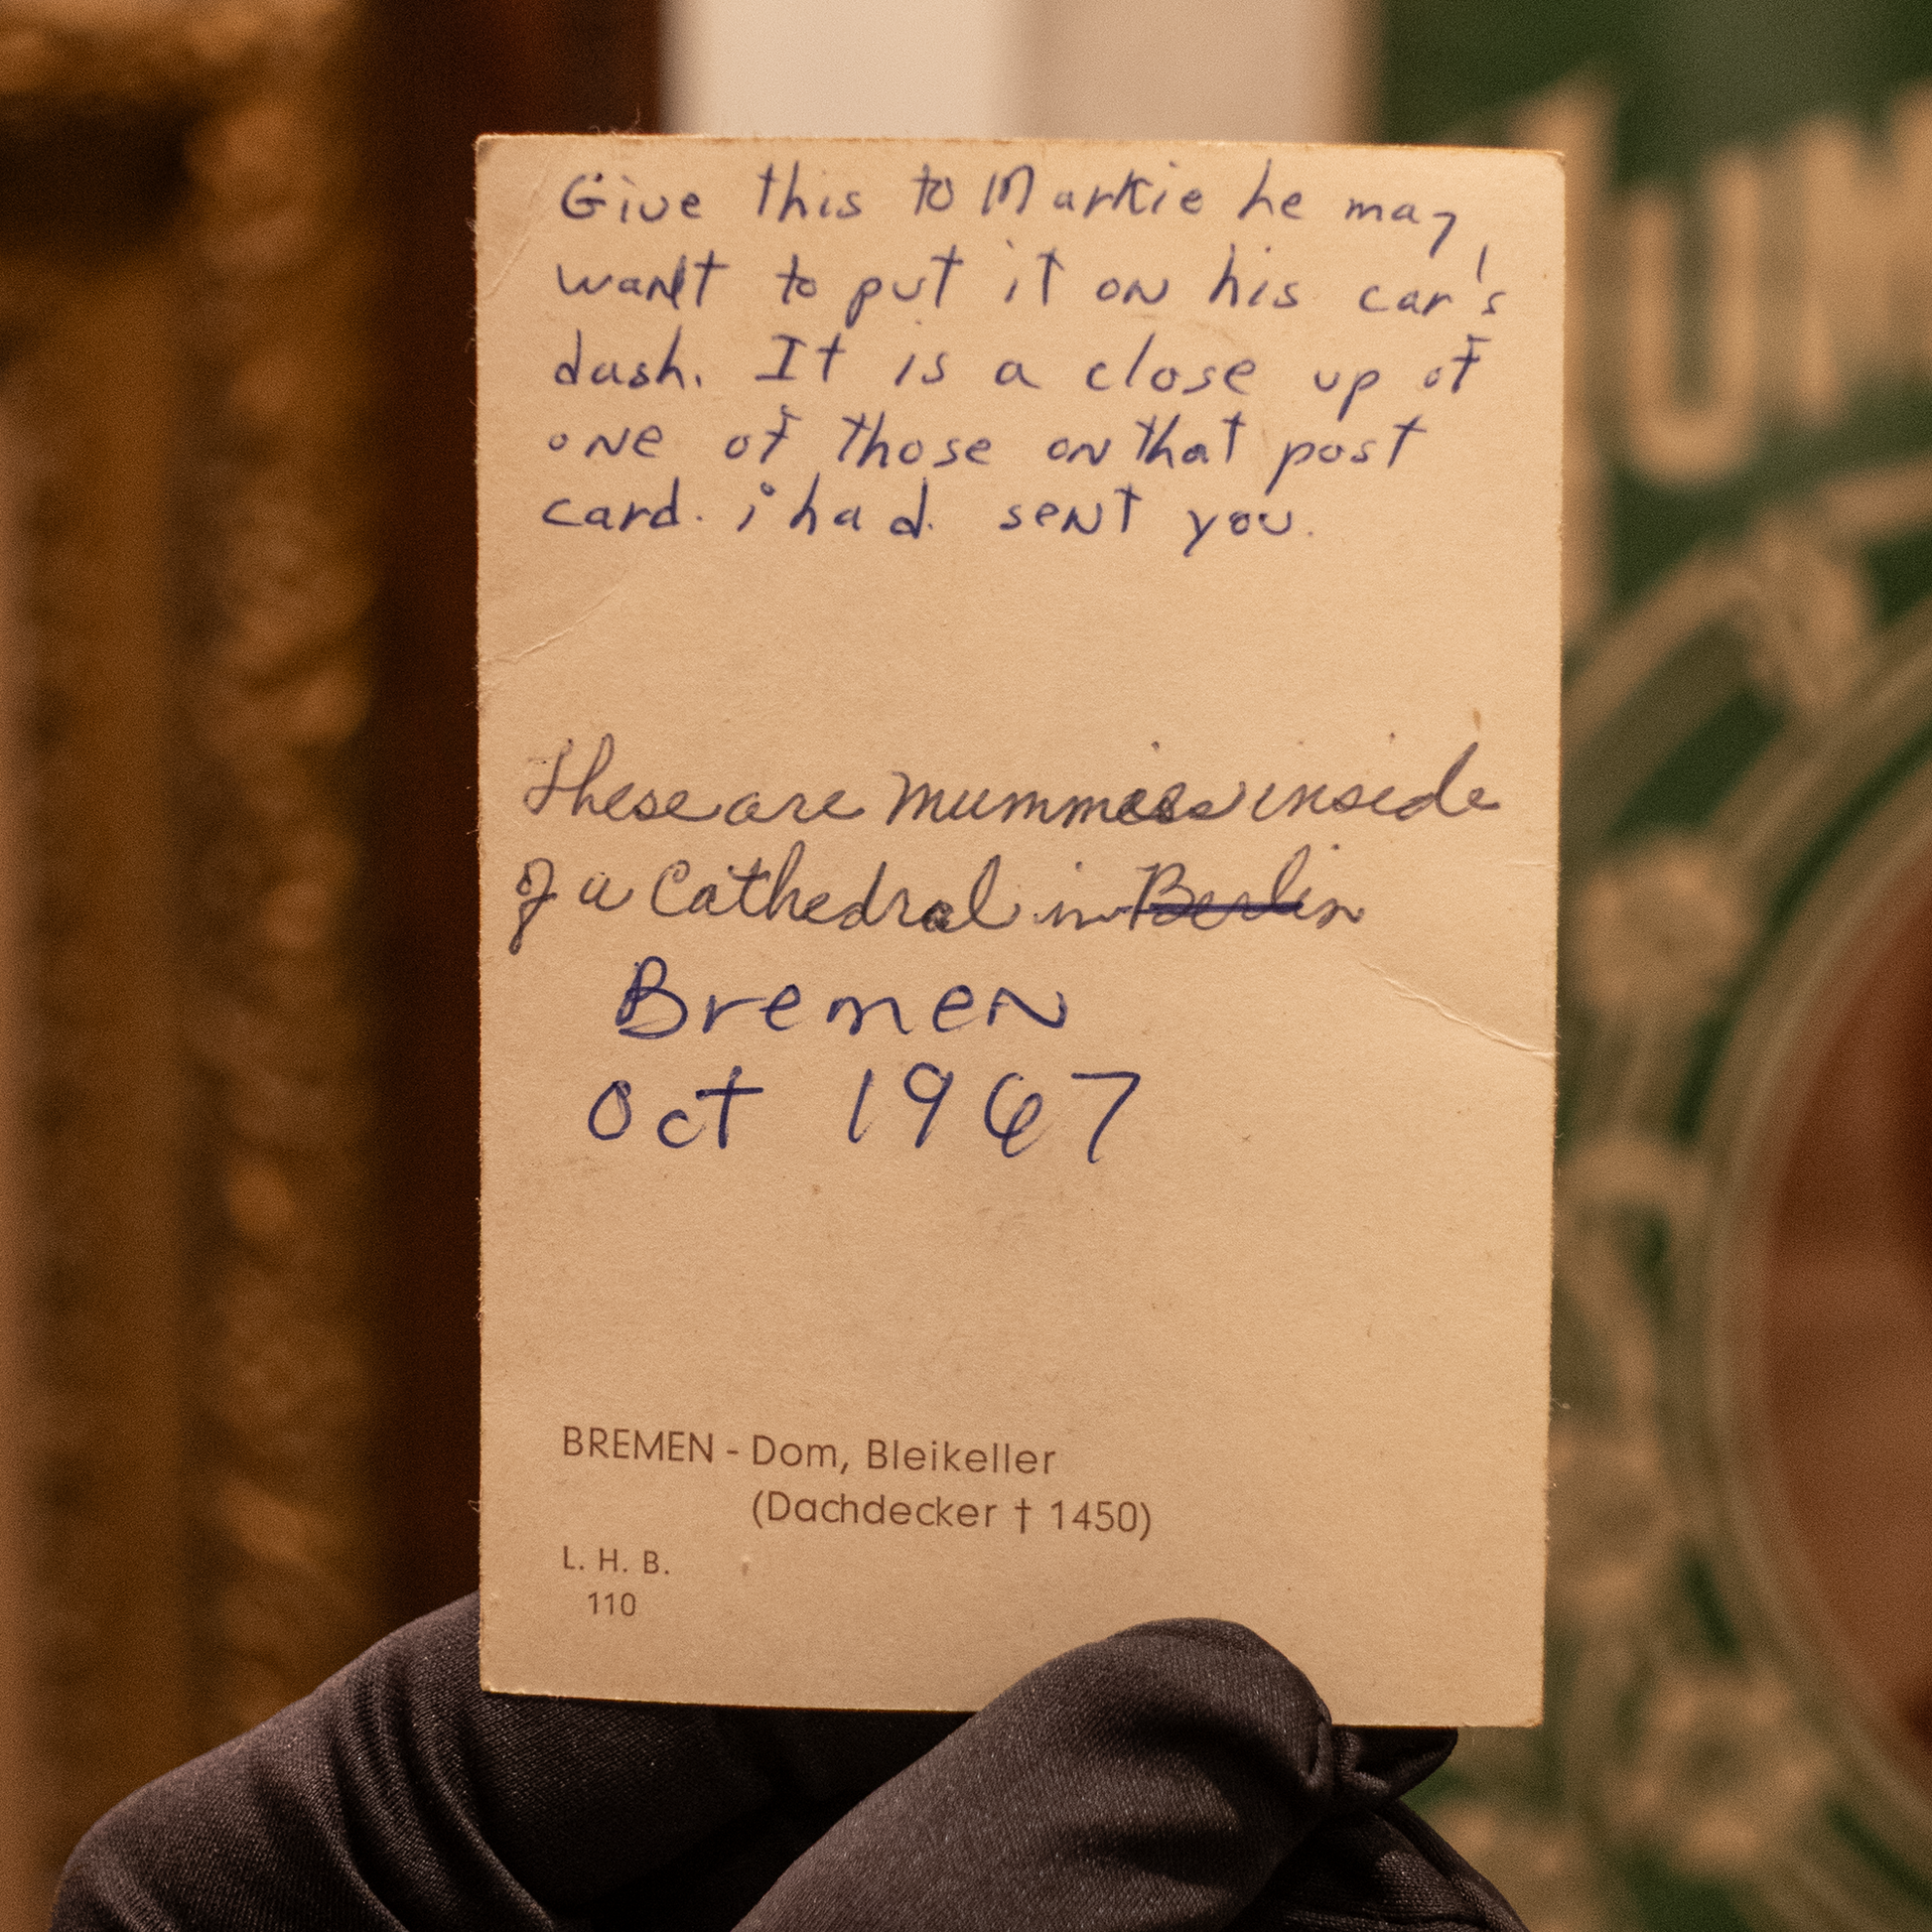 Give this to Markie he may
want to put it on his car's
dash. It is a close up of
one of those on that post
card. i had sent you.
These are mummies inside
of a Cathedral in Berlin
Bremen
Oct 1967
BREMEN - Dom, Bleikeller
(Dachdecker † 1450)
L. H. B.
110